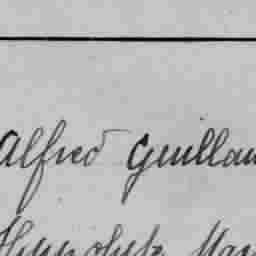 Alfred Guillau
Hippolyte Mar